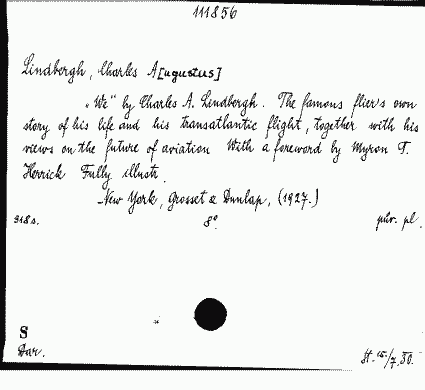 111856
Lindbergh, Charles A[ugustus]
„We“ by Charles A. Lindbergh. The famous flier's own
story of his life and his transatlantic flight, together with his
views on the future of aviation With a foreword by Myron T.
Herrick Fully illustr.
New York, Grosset & Dunlap, (1927.)
318 s. 8° phr. pl.
S
Dar. St. 15/7.30.